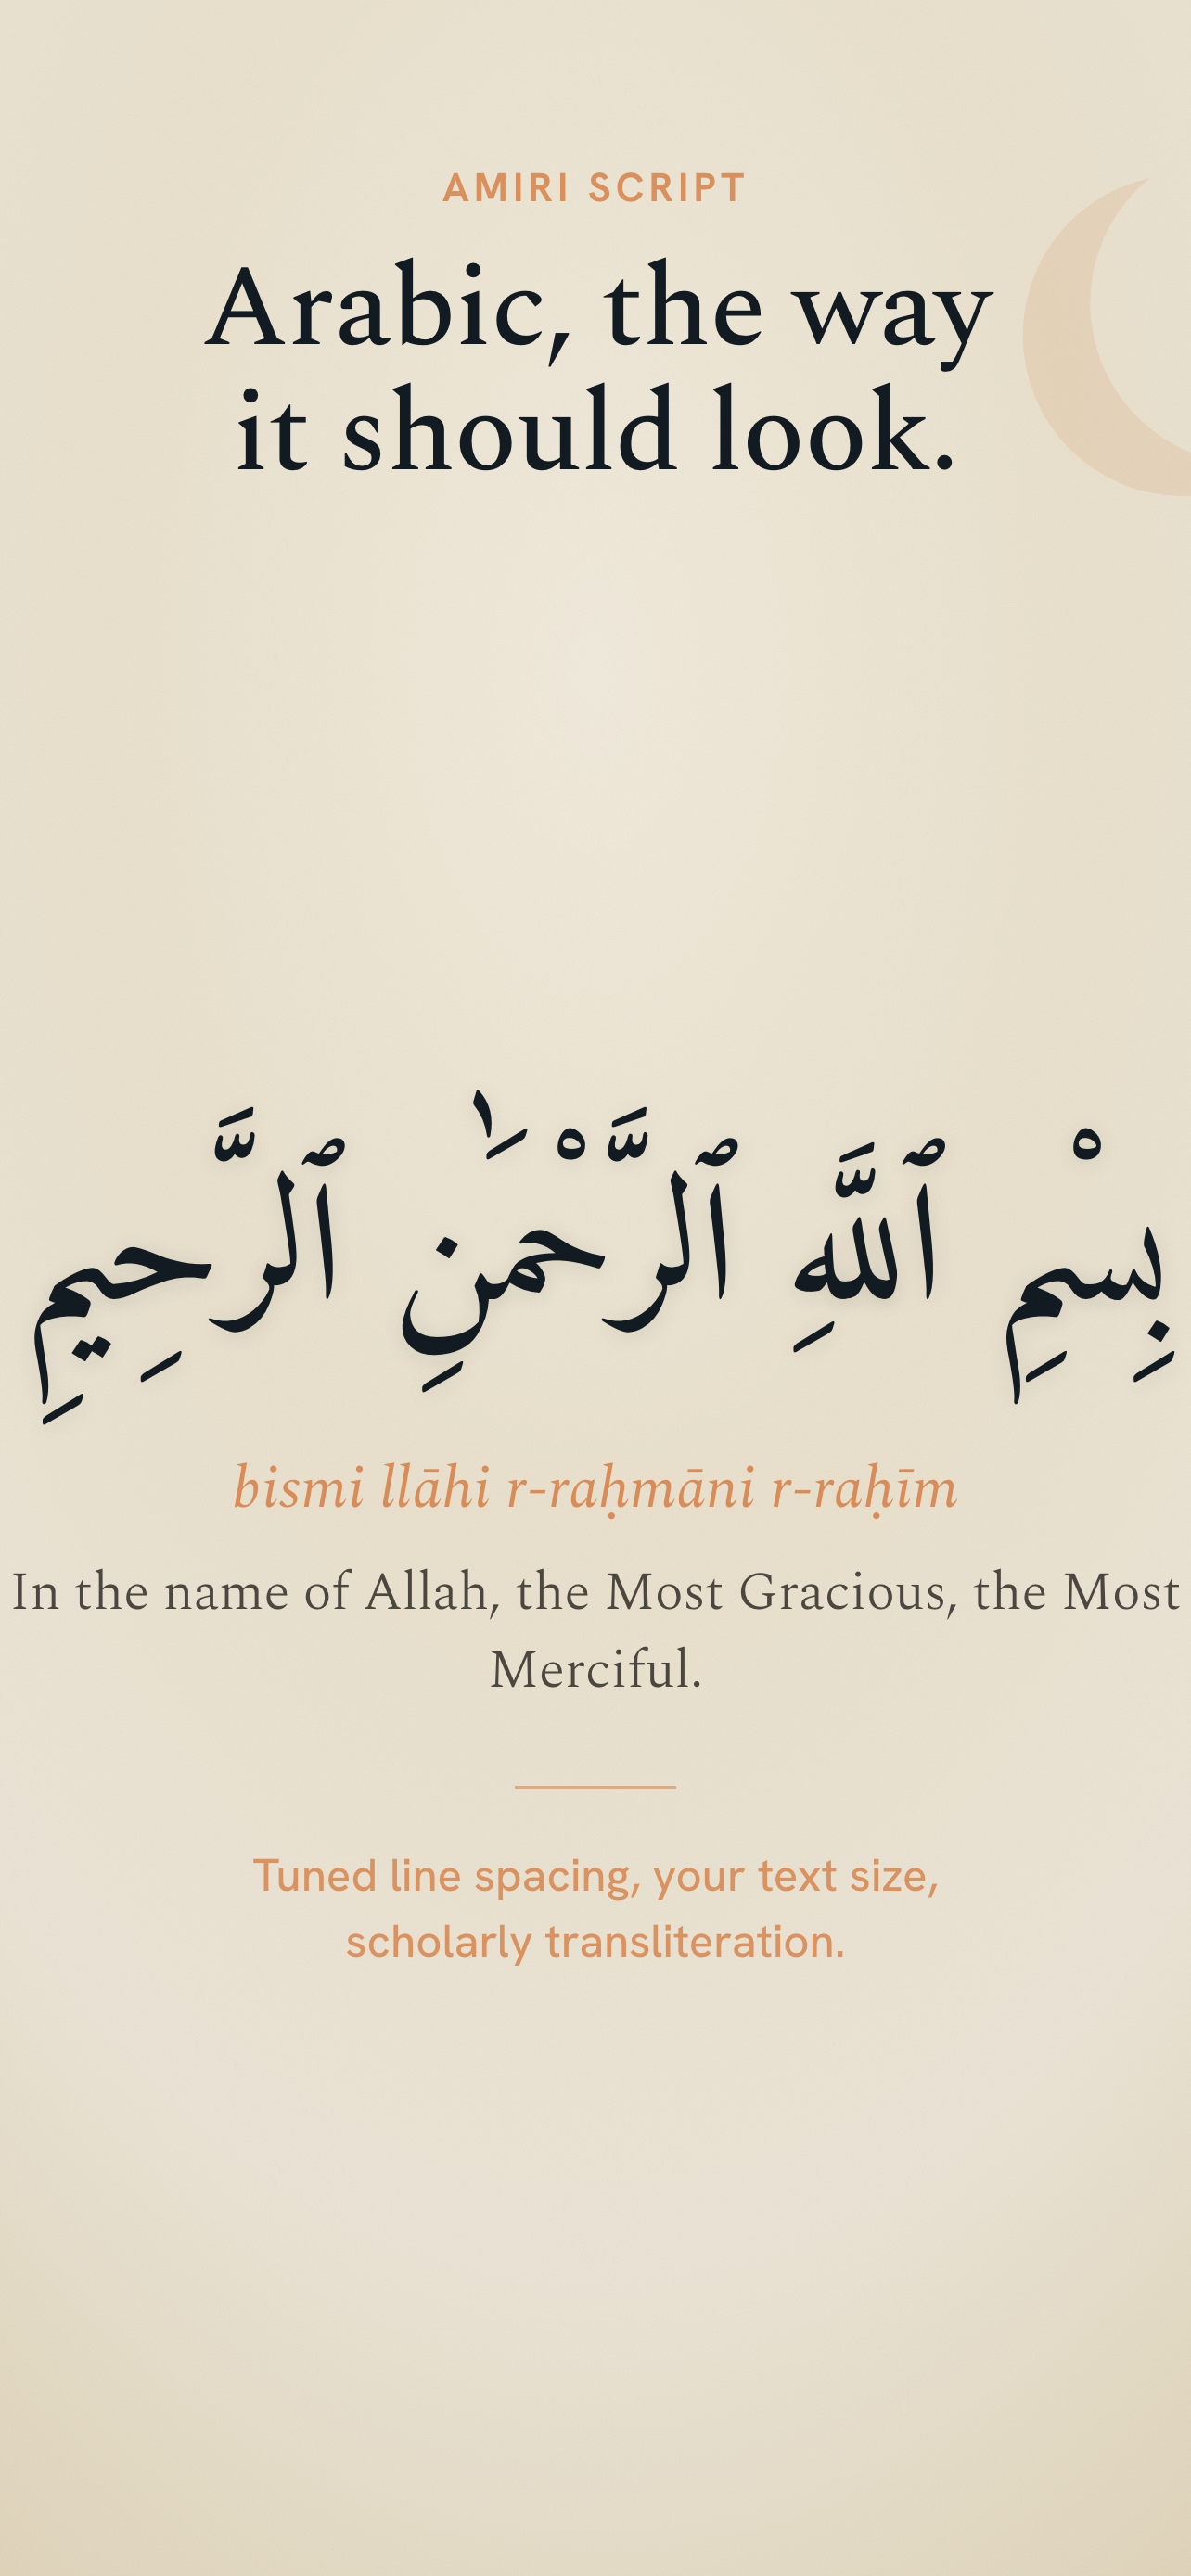 AMIRI SCRIPT
Arabic, the way
it should look.
بِسْمِ ٱللَّهِ ٱلرَّحْمَٰنِ ٱلرَّحِيمِ
bismi llāhi r-raḥmāni r-raḥīm
In the name of Allah, the Most Gracious, the Most
Merciful.
Tuned line spacing, your text size,
scholarly transliteration.